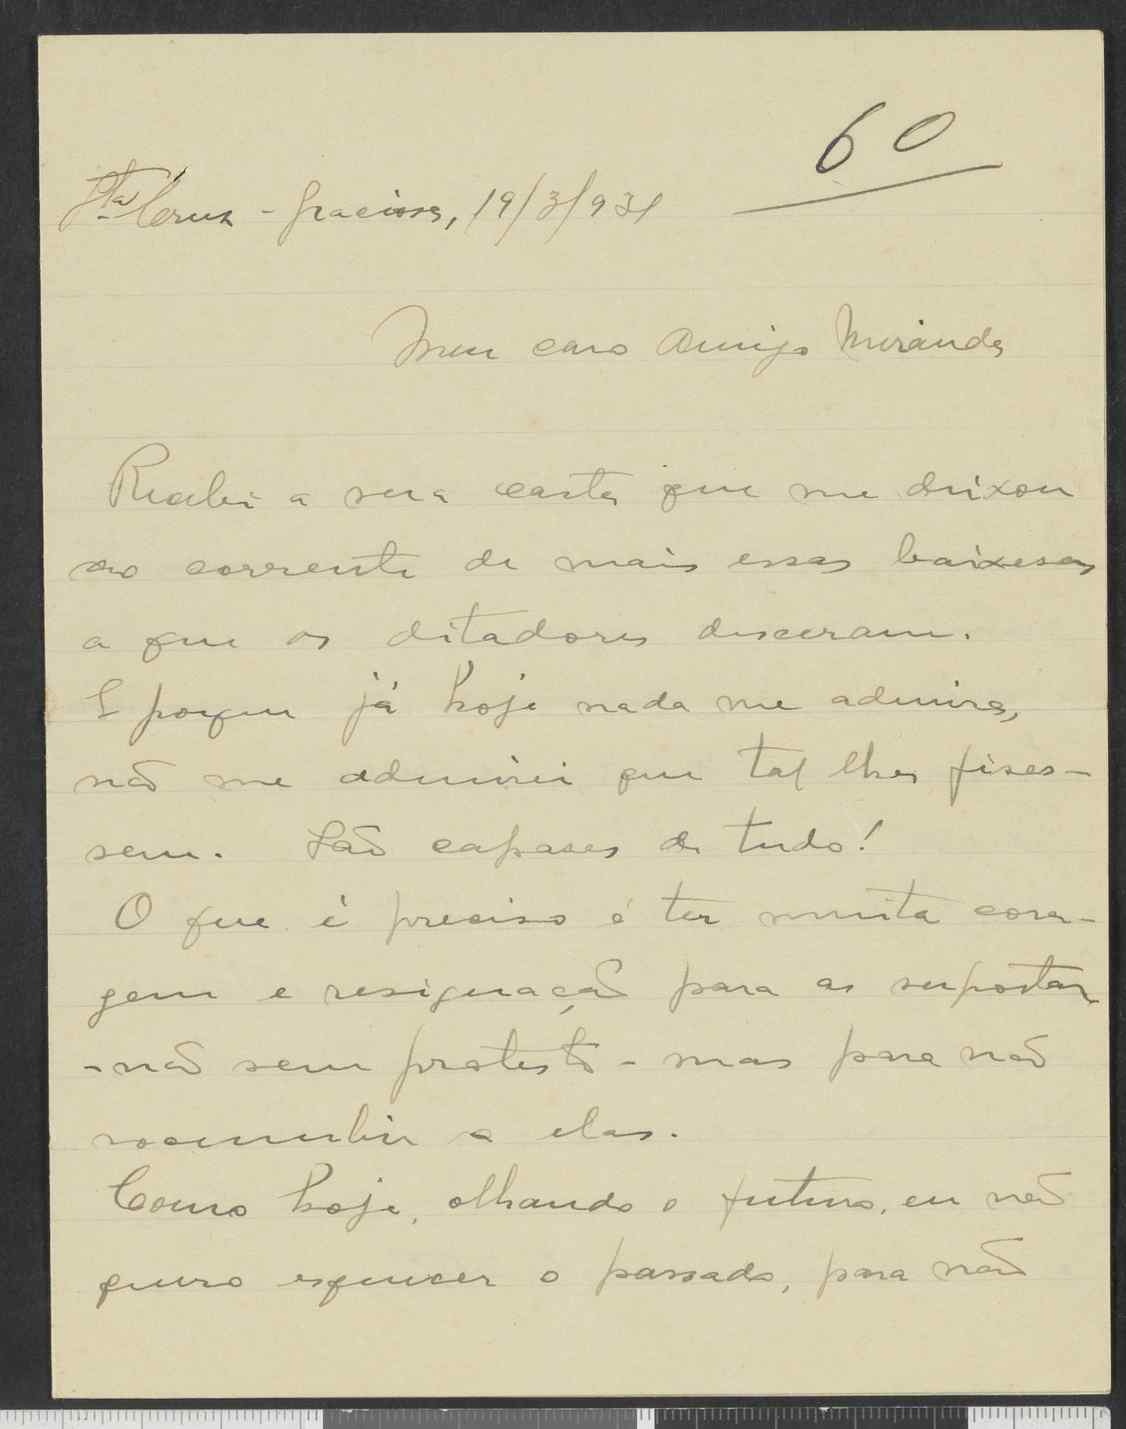 60
Sta Cruz - Graciosa, 19/3/931
Meu caro Amigo Miranda
Recebi a sua carta que me deixou
ao corrente de mais essas baixesas
a que os ditadores desceram.
E porque já hoje nada me admira,
não me admirei que tal lhes fises-
sem. São capases de tudo!
O que é preciso é ter muita cora-
gem e resignação para as suportar
- não sem protesto - mas para não
socumbir a elas.
Como hoje, olhando o futuro, eu não
quero esquecer o passado, para não